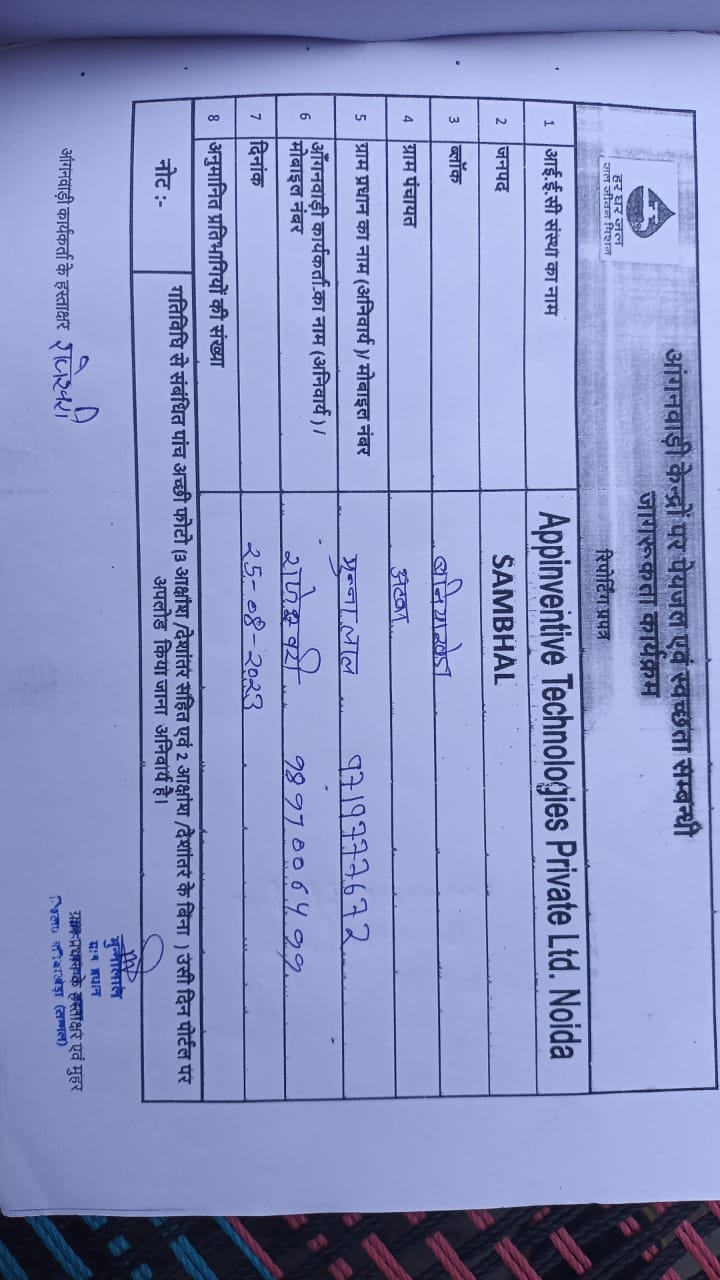 हर घर जल
जल जीवन मिशन
आंगनवाड़ी केन्द्रों पर पेयजल एवं स्वच्छता सम्बन्धी
जागरूकता कार्यक्रम
रिपोर्टिंग प्रपत्र
1 आई.ई.सी संस्था का नाम Appinventive Technologies Private Ltd. Noida
2 जनपद SAMBHAL
3 ब्लॉक बनियाखेड़ा
4 ग्राम पंचायत
5 ग्राम प्रधान का नाम (अनिवार्य )/ मोबाइल नंबर मुन्ना लाल
6 आँगनवाड़ी कार्यकर्ता का नाम (अनिवार्य ) /
मोबाइल नंबर
7 दिनांक २5-०8-२०२3
8 अनुमानित प्रतिभागियों की संख्या
नोट :- गतिविधि से संबंधित पांच अच्छी फोटो (3 आक्षांश /देशांतर सहित एवं 2 आक्षांश /देशांतर के बिना ) उसी दिन पोर्टल पर
अपलोड किया जाना अनिवार्य है।
आंगनवाड़ी कार्यकर्ता के हस्ताक्षर
मुन्नालाल
प्रधान
हस्ताक्षर एवं मुहर
(सम्भल)